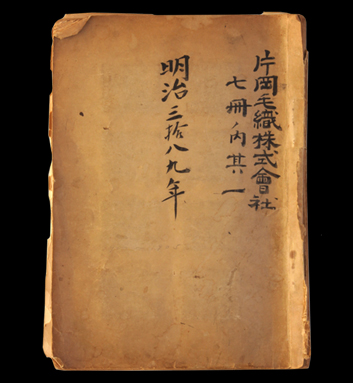 片岡毛織株式會社
七冊ノ内其一
明治三拾八九年